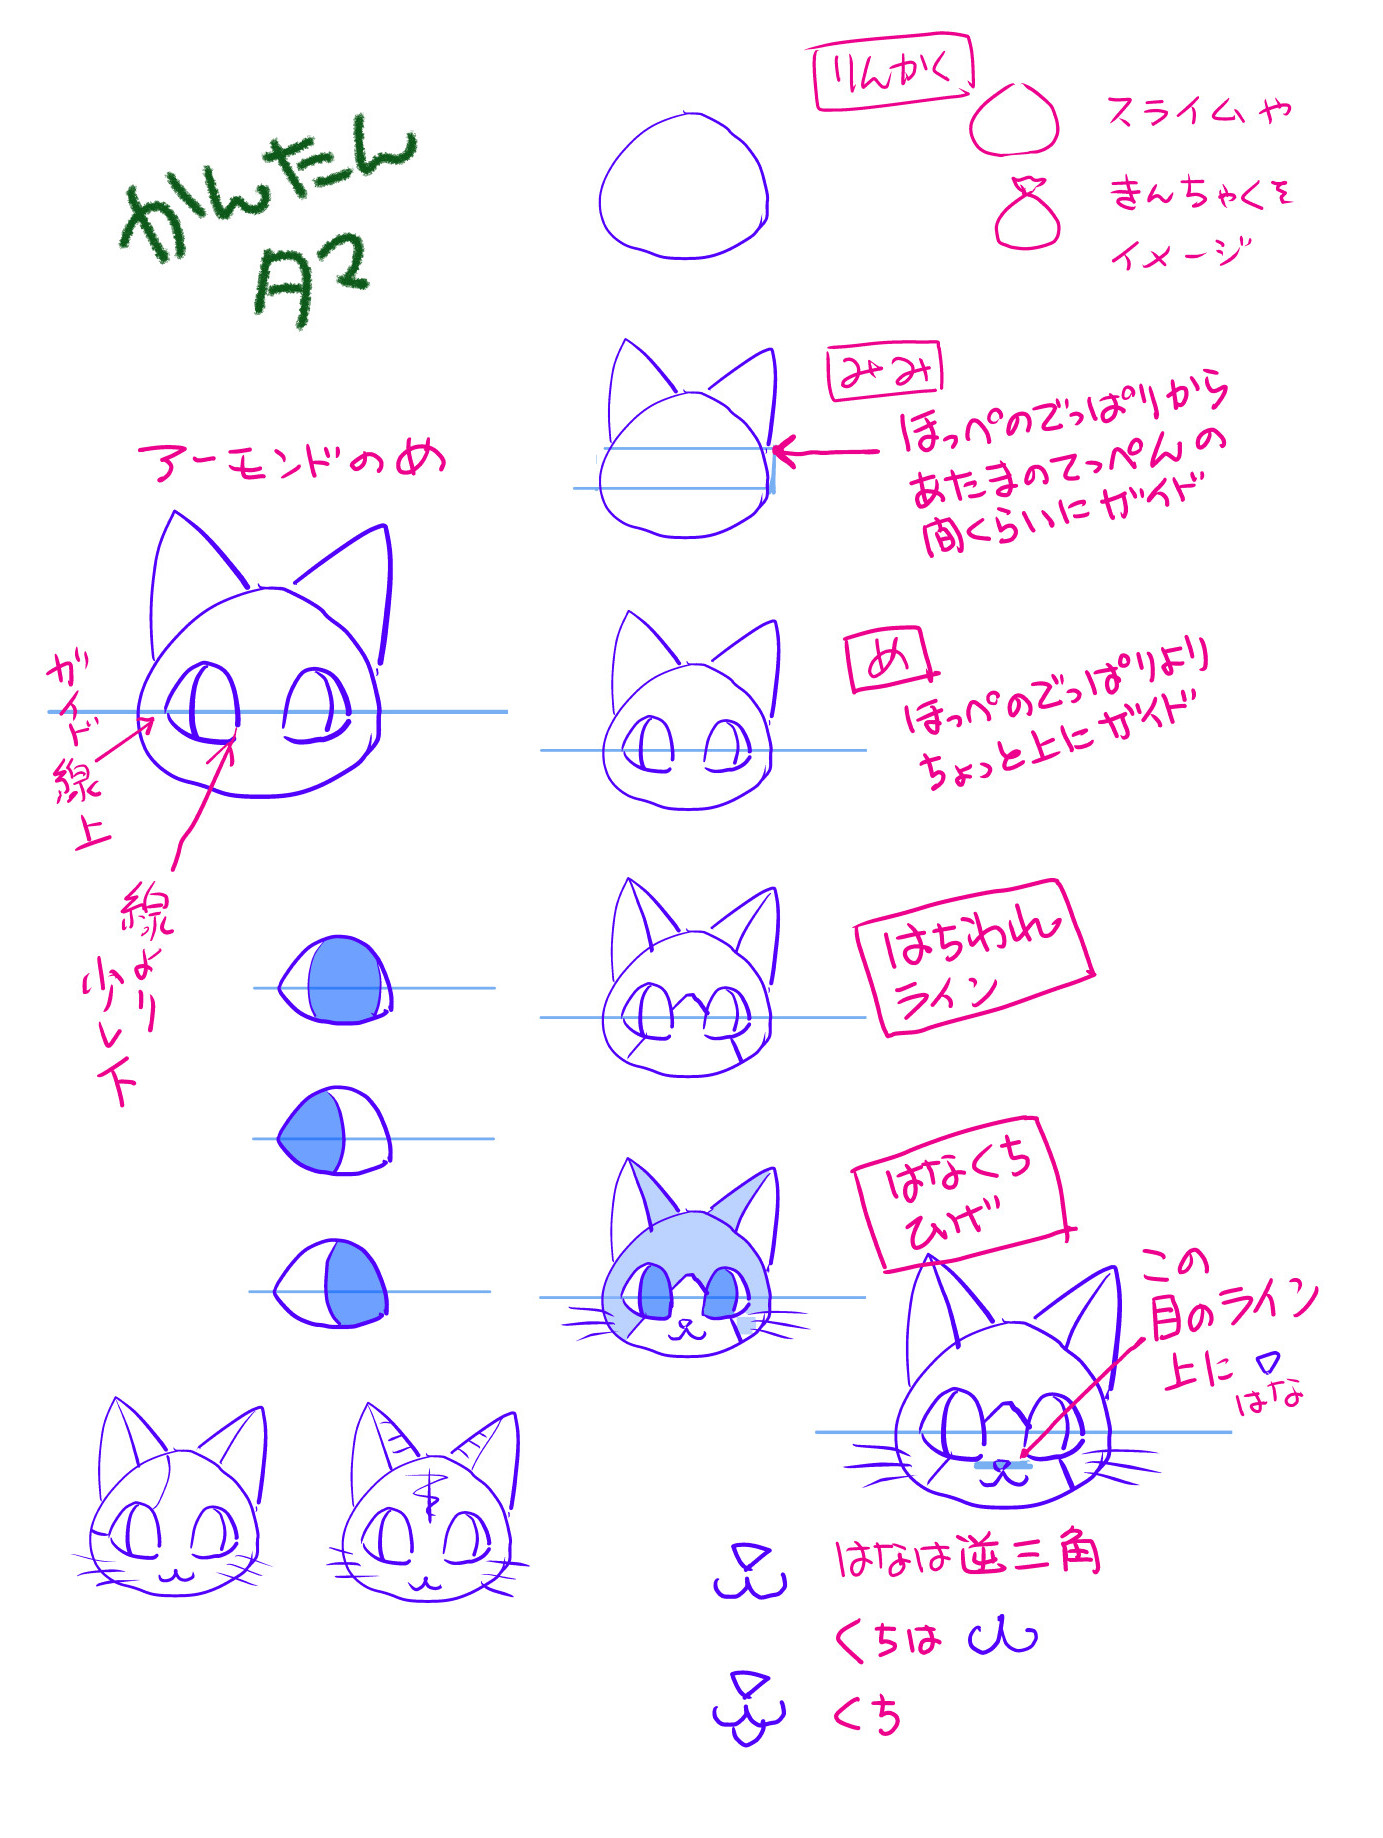 かんたん
タマ
りんかく
スライムや
きんちゃくを
イメージ
みみ
ほっぺのでっぱりから
あたまのてっぺんの
間くらいにガイド
アーモンドのめ
ガイド
線上
線より
少し下
め
ほっぺのでっぱりより
ちょっと上にガイド
はちわれ
ライン
はなくち
ひげ
この
目のライン
上に
はな
はなは逆三角
くちは
くち